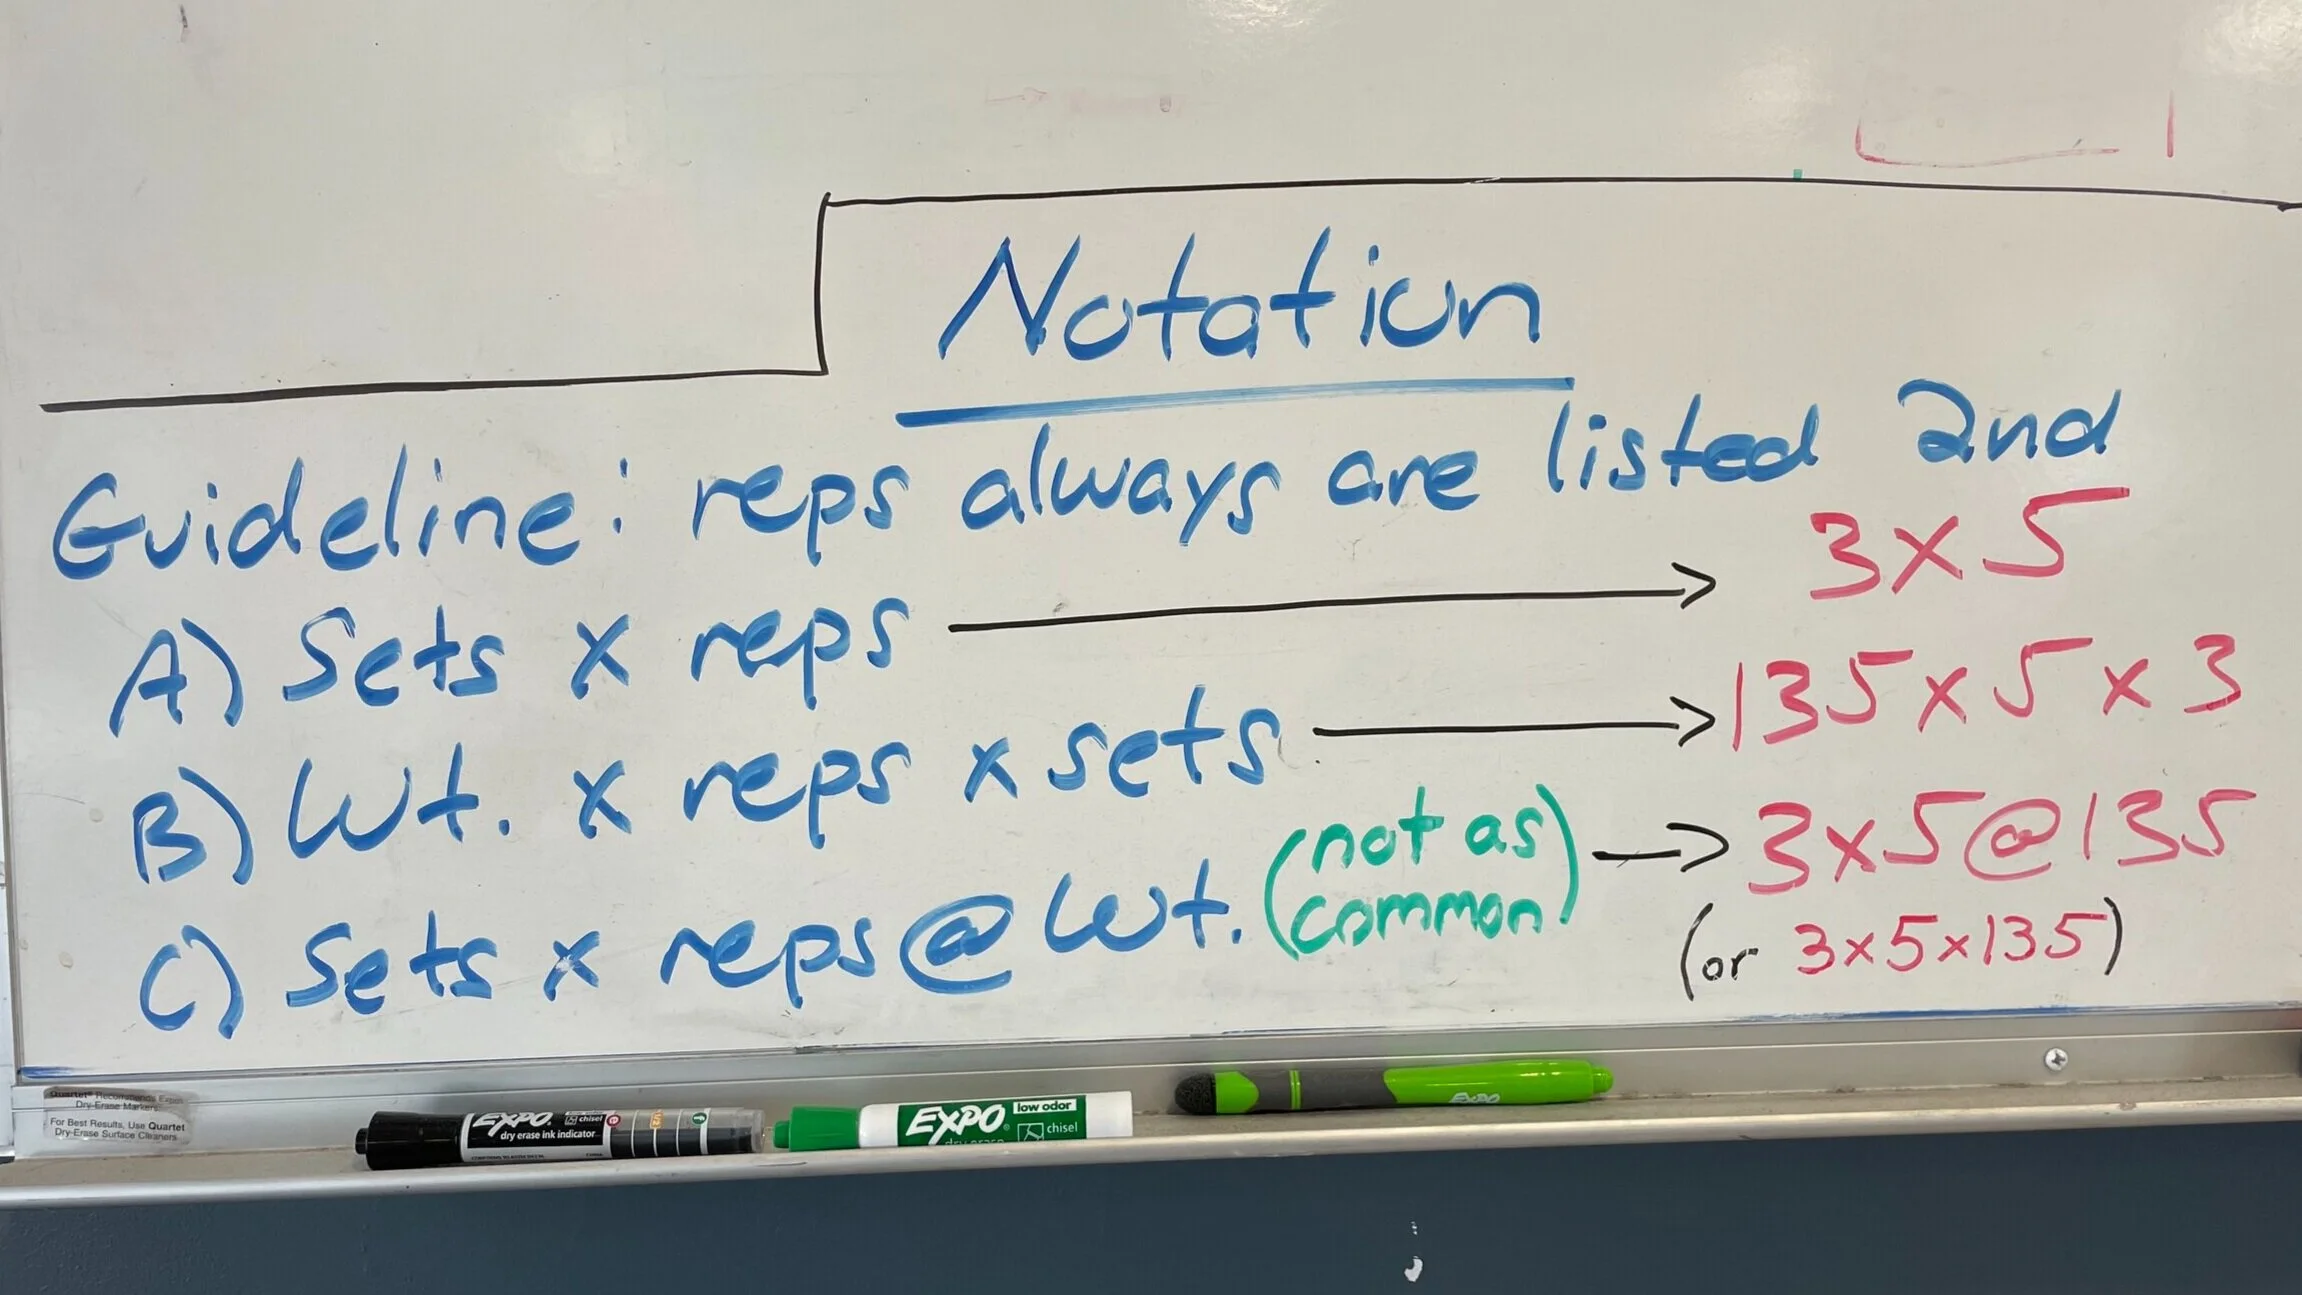 Notation
Guideline: reps always are listed 2nd
A) Sets x reps → 3 x 5
B) Wt. x reps x sets → 135 x 5 x 3
C) Sets x reps @ Wt. (not as common) → 3x5@135
(or 3x5x135)
Quartet® Recommends Expo
Dry-Erase Markers
For Best Results, Use Quartet
Dry-Erase Surface Cleaners
EXPO® chisel
dry erase ink indicator
EXPO® low odor
dry erase chisel
EXPO